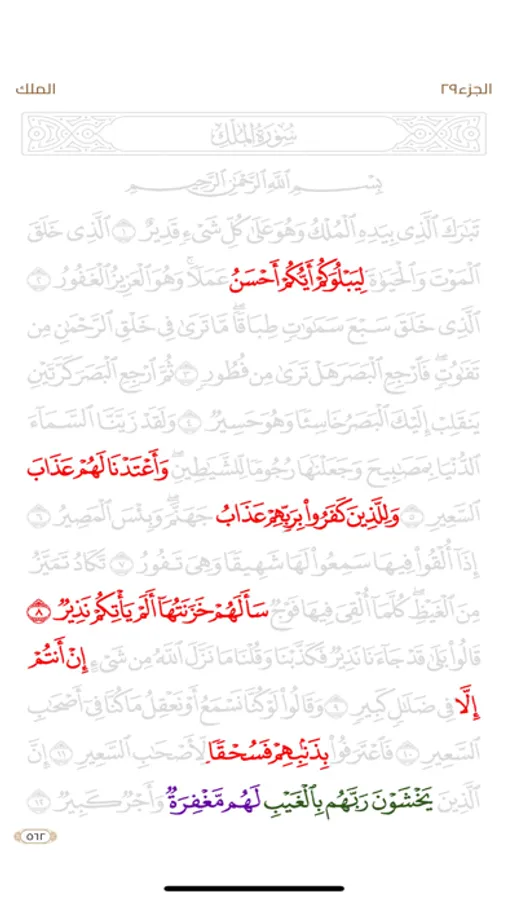 الجزء٢٩
الملك
سُورَةُ المُلْكِ
بِسْمِ اللَّهِ الرَّحْمَٰنِ الرَّحِيمِ
تَبَٰرَكَ ٱلَّذِى بِيَدِهِ ٱلْمُلْكُ وَهُوَ عَلَىٰ كُلِّ شَىْءٍ قَدِيرٌ ١ ٱلَّذِى خَلَقَ
ٱلْمَوْتَ وَٱلْحَيَوٰةَ لِيَبْلُوَكُمْ أَيُّكُمْ أَحْسَنُ عَمَلًا ۚ وَهُوَ ٱلْعَزِيزُ ٱلْغَفُورُ ٢
ٱلَّذِى خَلَقَ سَبْعَ سَمَٰوَٰتٍ طِبَاقًا ۖ مَّا تَرَىٰ فِى خَلْقِ ٱلرَّحْمَٰنِ مِن
تَفَٰوُتٍ ۖ فَٱرْجِعِ ٱلْبَصَرَ هَلْ تَرَىٰ مِن فُطُورٍ ٣ ثُمَّ ٱرْجِعِ ٱلْبَصَرَ كَرَّتَيْنِ
يَنقَلِبْ إِلَيْكَ ٱلْبَصَرُ خَاسِئًا وَهُوَ حَسِيرٌ ٤ وَلَقَدْ زَيَّنَّا ٱلسَّمَآءَ
ٱلدُّنْيَا بِمَصَٰبِيحَ وَجَعَلْنَٰهَا رُجُومًا لِّلشَّيَٰطِينِ ۖ وَأَعْتَدْنَا لَهُمْ عَذَابَ
ٱلسَّعِيرِ ٥ وَلِلَّذِينَ كَفَرُوا۟ بِرَبِّهِمْ عَذَابُ جَهَنَّمَ ۖ وَبِئْسَ ٱلْمَصِيرُ ٦
إِذَآ أُلْقُوا۟ فِيهَا سَمِعُوا۟ لَهَا شَهِيقًا وَهِىَ تَفُورُ ٧ تَكَادُ تَمَيَّزُ
مِنَ ٱلْغَيْظِ ۖ كُلَّمَآ أُلْقِىَ فِيهَا فَوْجٌ سَأَلَهُمْ خَزَنَتُهَآ أَلَمْ يَأْتِكُمْ نَذِيرٌ ٨
قَالُوا۟ بَلَىٰ قَدْ جَآءَنَا نَذِيرٌ فَكَذَّبْنَا وَقُلْنَا مَا نَزَّلَ ٱللَّهُ مِن شَىْءٍ إِنْ أَنتُمْ
إِلَّا فِى ضَلَٰلٍ كَبِيرٍ ٩ وَقَالُوا۟ لَوْ كُنَّا نَسْمَعُ أَوْ نَعْقِلُ مَا كُنَّا فِىٓ أَصْحَٰبِ
ٱلسَّعِيرِ ١٠ فَٱعْتَرَفُوا۟ بِذَنۢبِهِمْ فَسُحْقًا لِّأَصْحَٰبِ ٱلسَّعِيرِ ١١ إِنَّ
ٱلَّذِينَ يَخْشَوْنَ رَبَّهُم بِٱلْغَيْبِ لَهُم مَّغْفِرَةٌ وَأَجْرٌ كَبِيرٌ ١٢
٥٦٢